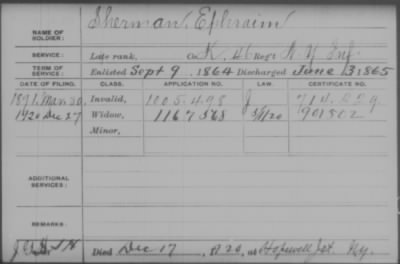 NAME OF SOLDIER: Sherman, Ephraim
SERVICE: Late rank, Co. K, 46 Reg't N Y Inf.
TERM OF SERVICE: Enlisted Sept 9, 1864 Discharged June 13, 1865
DATE OF FILING. CLASS. APPLICATION NO. LAW. CERTIFICATE NO.
1891, Mar 30 Invalid, 1005.498 J 714.559
1920 Dec 27 Widow, 1167568 901802
Minor,
ADDITIONAL SERVICES:
REMARKS:
Died Dec 17, 1920, at Hopewell Jct. Ny.